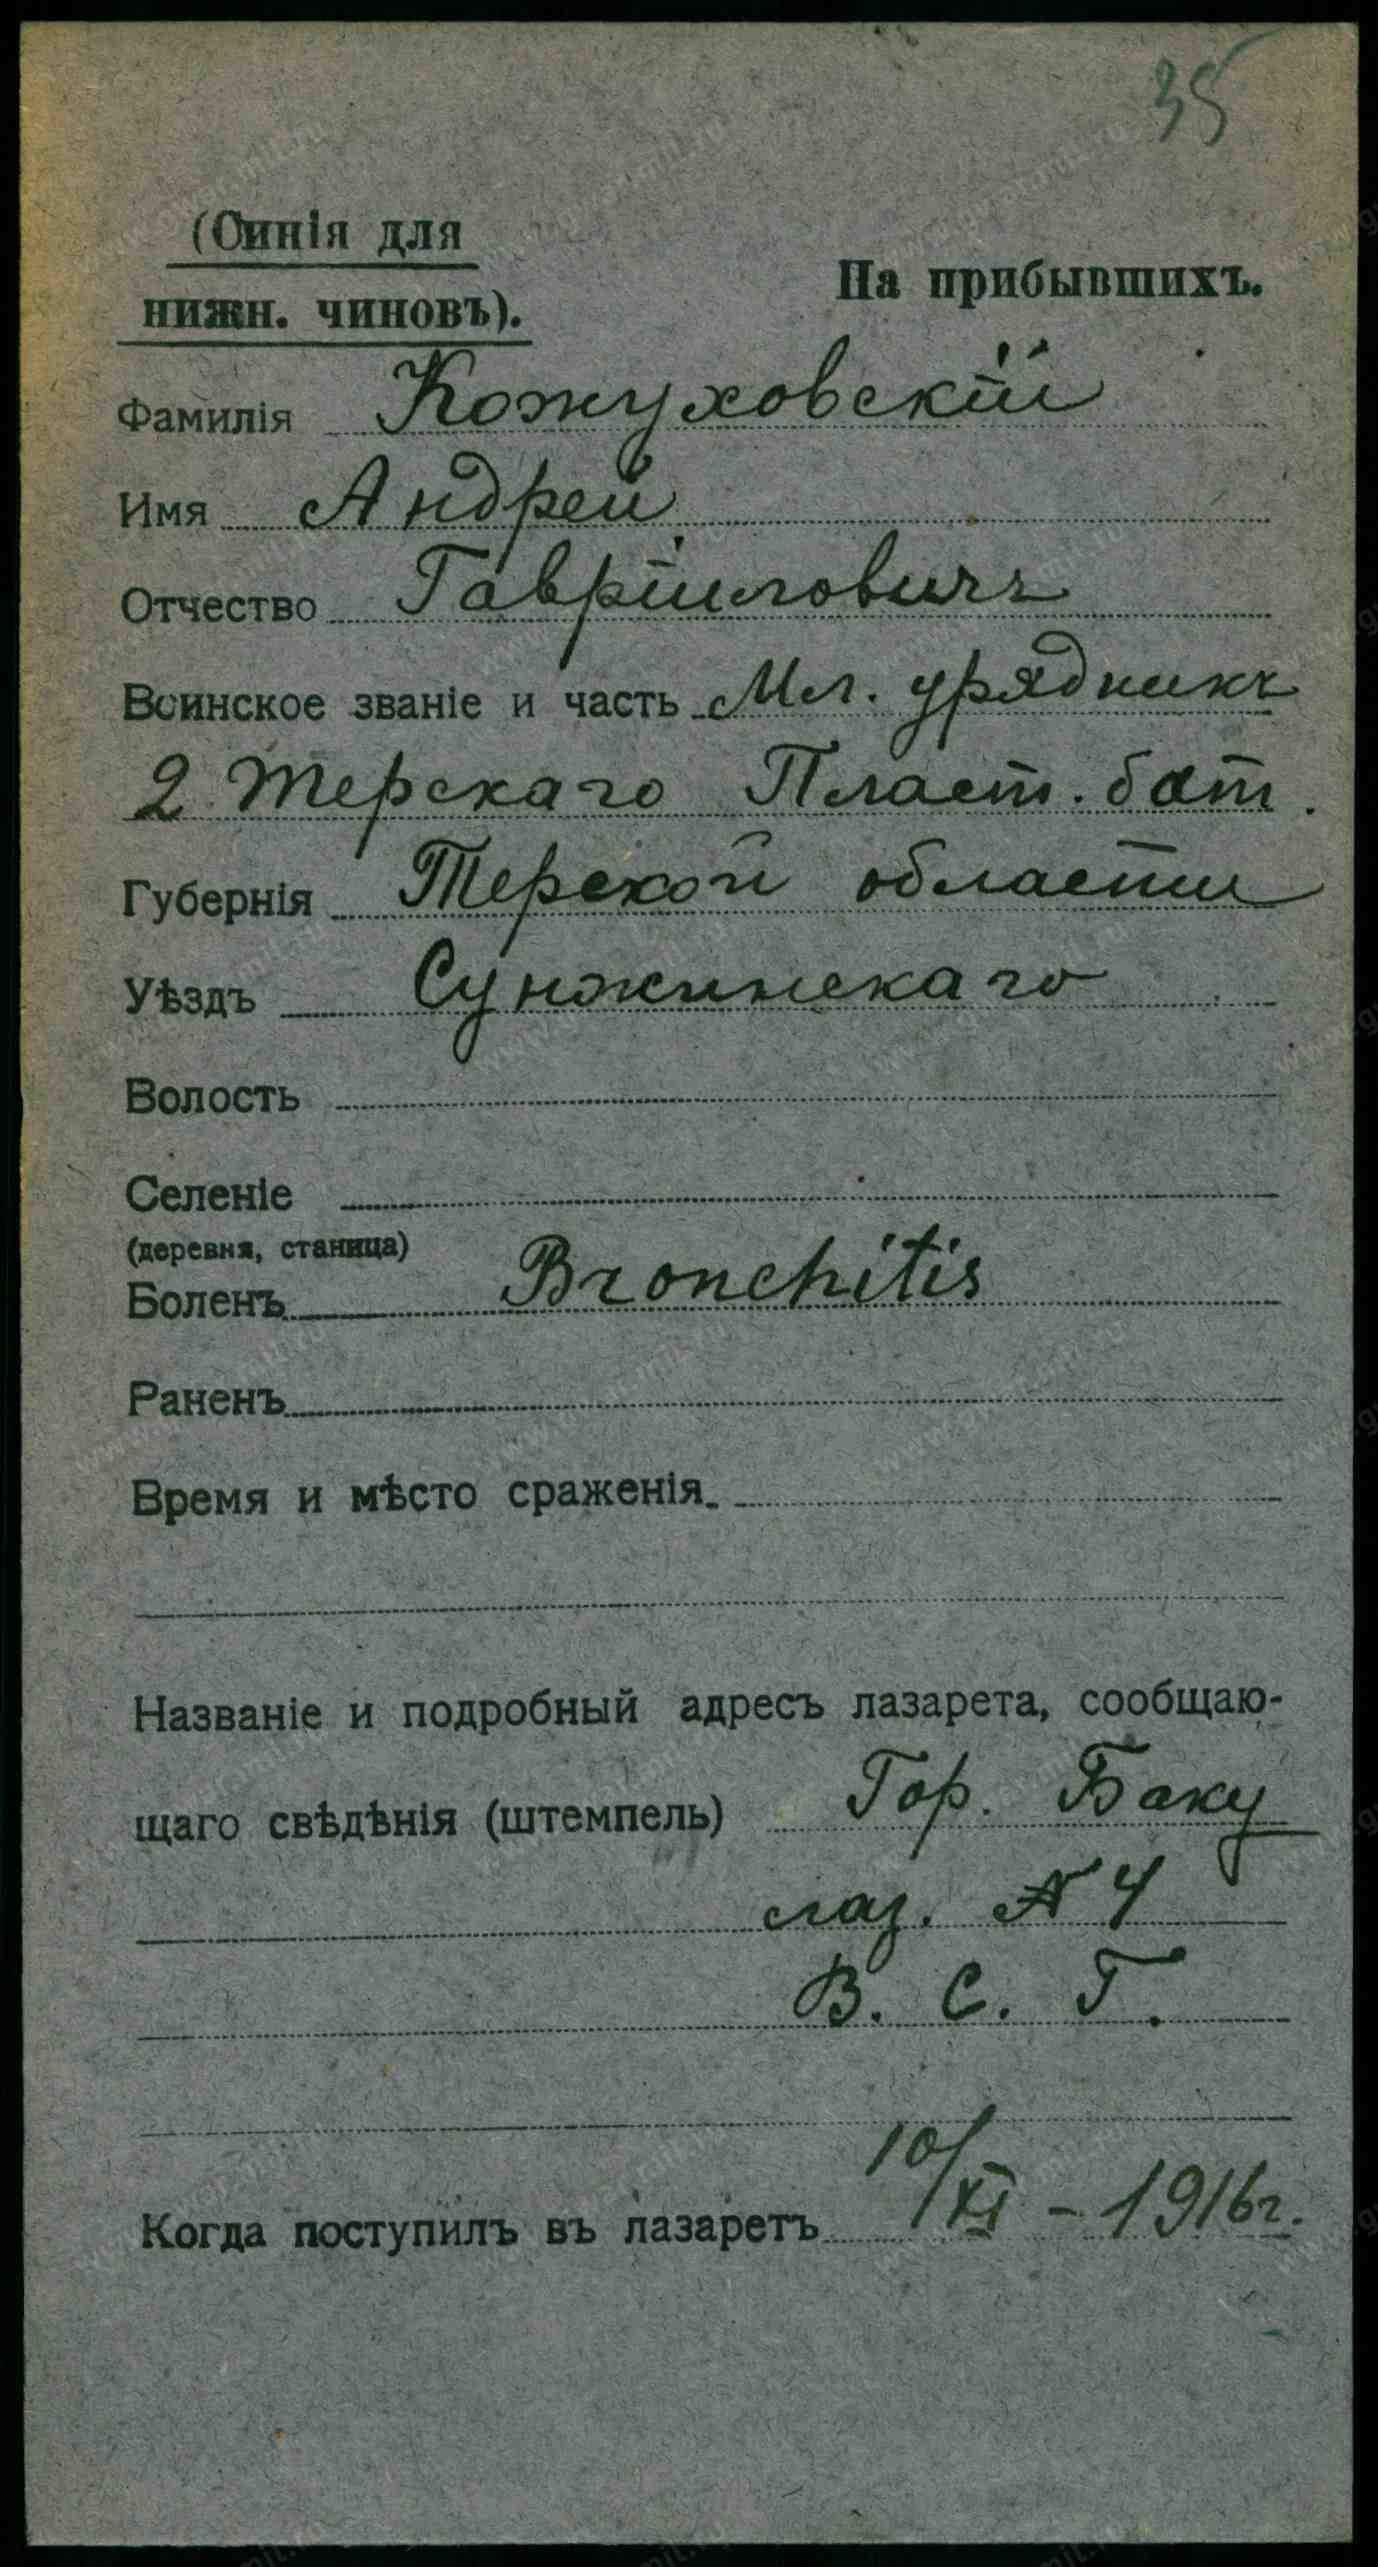 35
(Синія для
нижн. чиновъ).
На прибывшихъ.
Фамилія Кожуховскій
Имя Андрей
Отчество Гавріиловичъ
Воинское званіе и часть Мл. урядникъ
2 Терскаго Пласт. бат.
Губернія Терской области
Уѣздъ Сунжинскаго
Волость
Селеніе
(деревня, станица)
Боленъ Bronchitis
Раненъ
Время и мѣсто сраженія
Названіе и подробный адресъ лазарета, сообщаю-
щаго свѣдѣнія (штемпель) Гор. Баку
лаз. № 4
В. С. Г.
Когда поступилъ въ лазаретъ 10/XI - 1916 г.